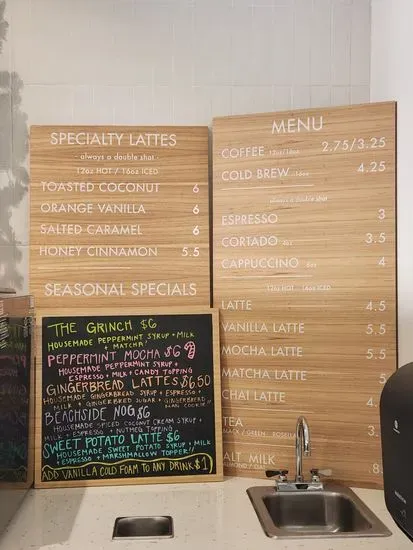 SPECIALTY LATTES
always a double shot
12oz HOT / 16oz ICED
TOASTED COCONUT 6
ORANGE VANILLA 6
SALTED CARAMEL 6
HONEY CINNAMON 5.5
SEASONAL SPECIALS
THE GRINCH $6
HOUSEMADE PEPPERMINT SYRUP + MILK
+ MATCHA!
PEPPERMINT MOCHA $6
HOUSEMADE PEPPERMINT SYRUP +
ESPRESSO + MILK + CANDY TOPPING
GINGERBREAD LATTES $6.50
HOUSEMADE GINGERBREAD SYRUP + ESPRESSO +
MILK + GINGERBREAD SUGAR + GINGERBREAD
MAN COOKIE!!
BEACHSIDE NOG $6
HOUSEMADE SPICED COCONUT CREAM SYRUP +
MILK + ESPRESSO + NUTMEG TOPPING
SWEET POTATO LATTE $6
HOUSEMADE SWEET POTATO SYRUP + MILK
+ ESPRESSO + MARSHMALLOW TOPPER!!
ADD VANILLA COLD FOAM TO ANY DRINK $1
MENU
COFFEE 12oz/16oz 2.75/3.25
COLD BREW 16oz 4.25
always a double shot
ESPRESSO 3
CORTADO 4oz 3.5
CAPPUCCINO 6oz 4
12oz HOT 16oz ICED
LATTE 4.5
VANILLA LATTE 5.5
MOCHA LATTE 5.5
MATCHA LATTE 5.5
CHAI LATTE 4.
TEA
BLACK / GREEN
ALT MILK .8
ALMOND / OAT